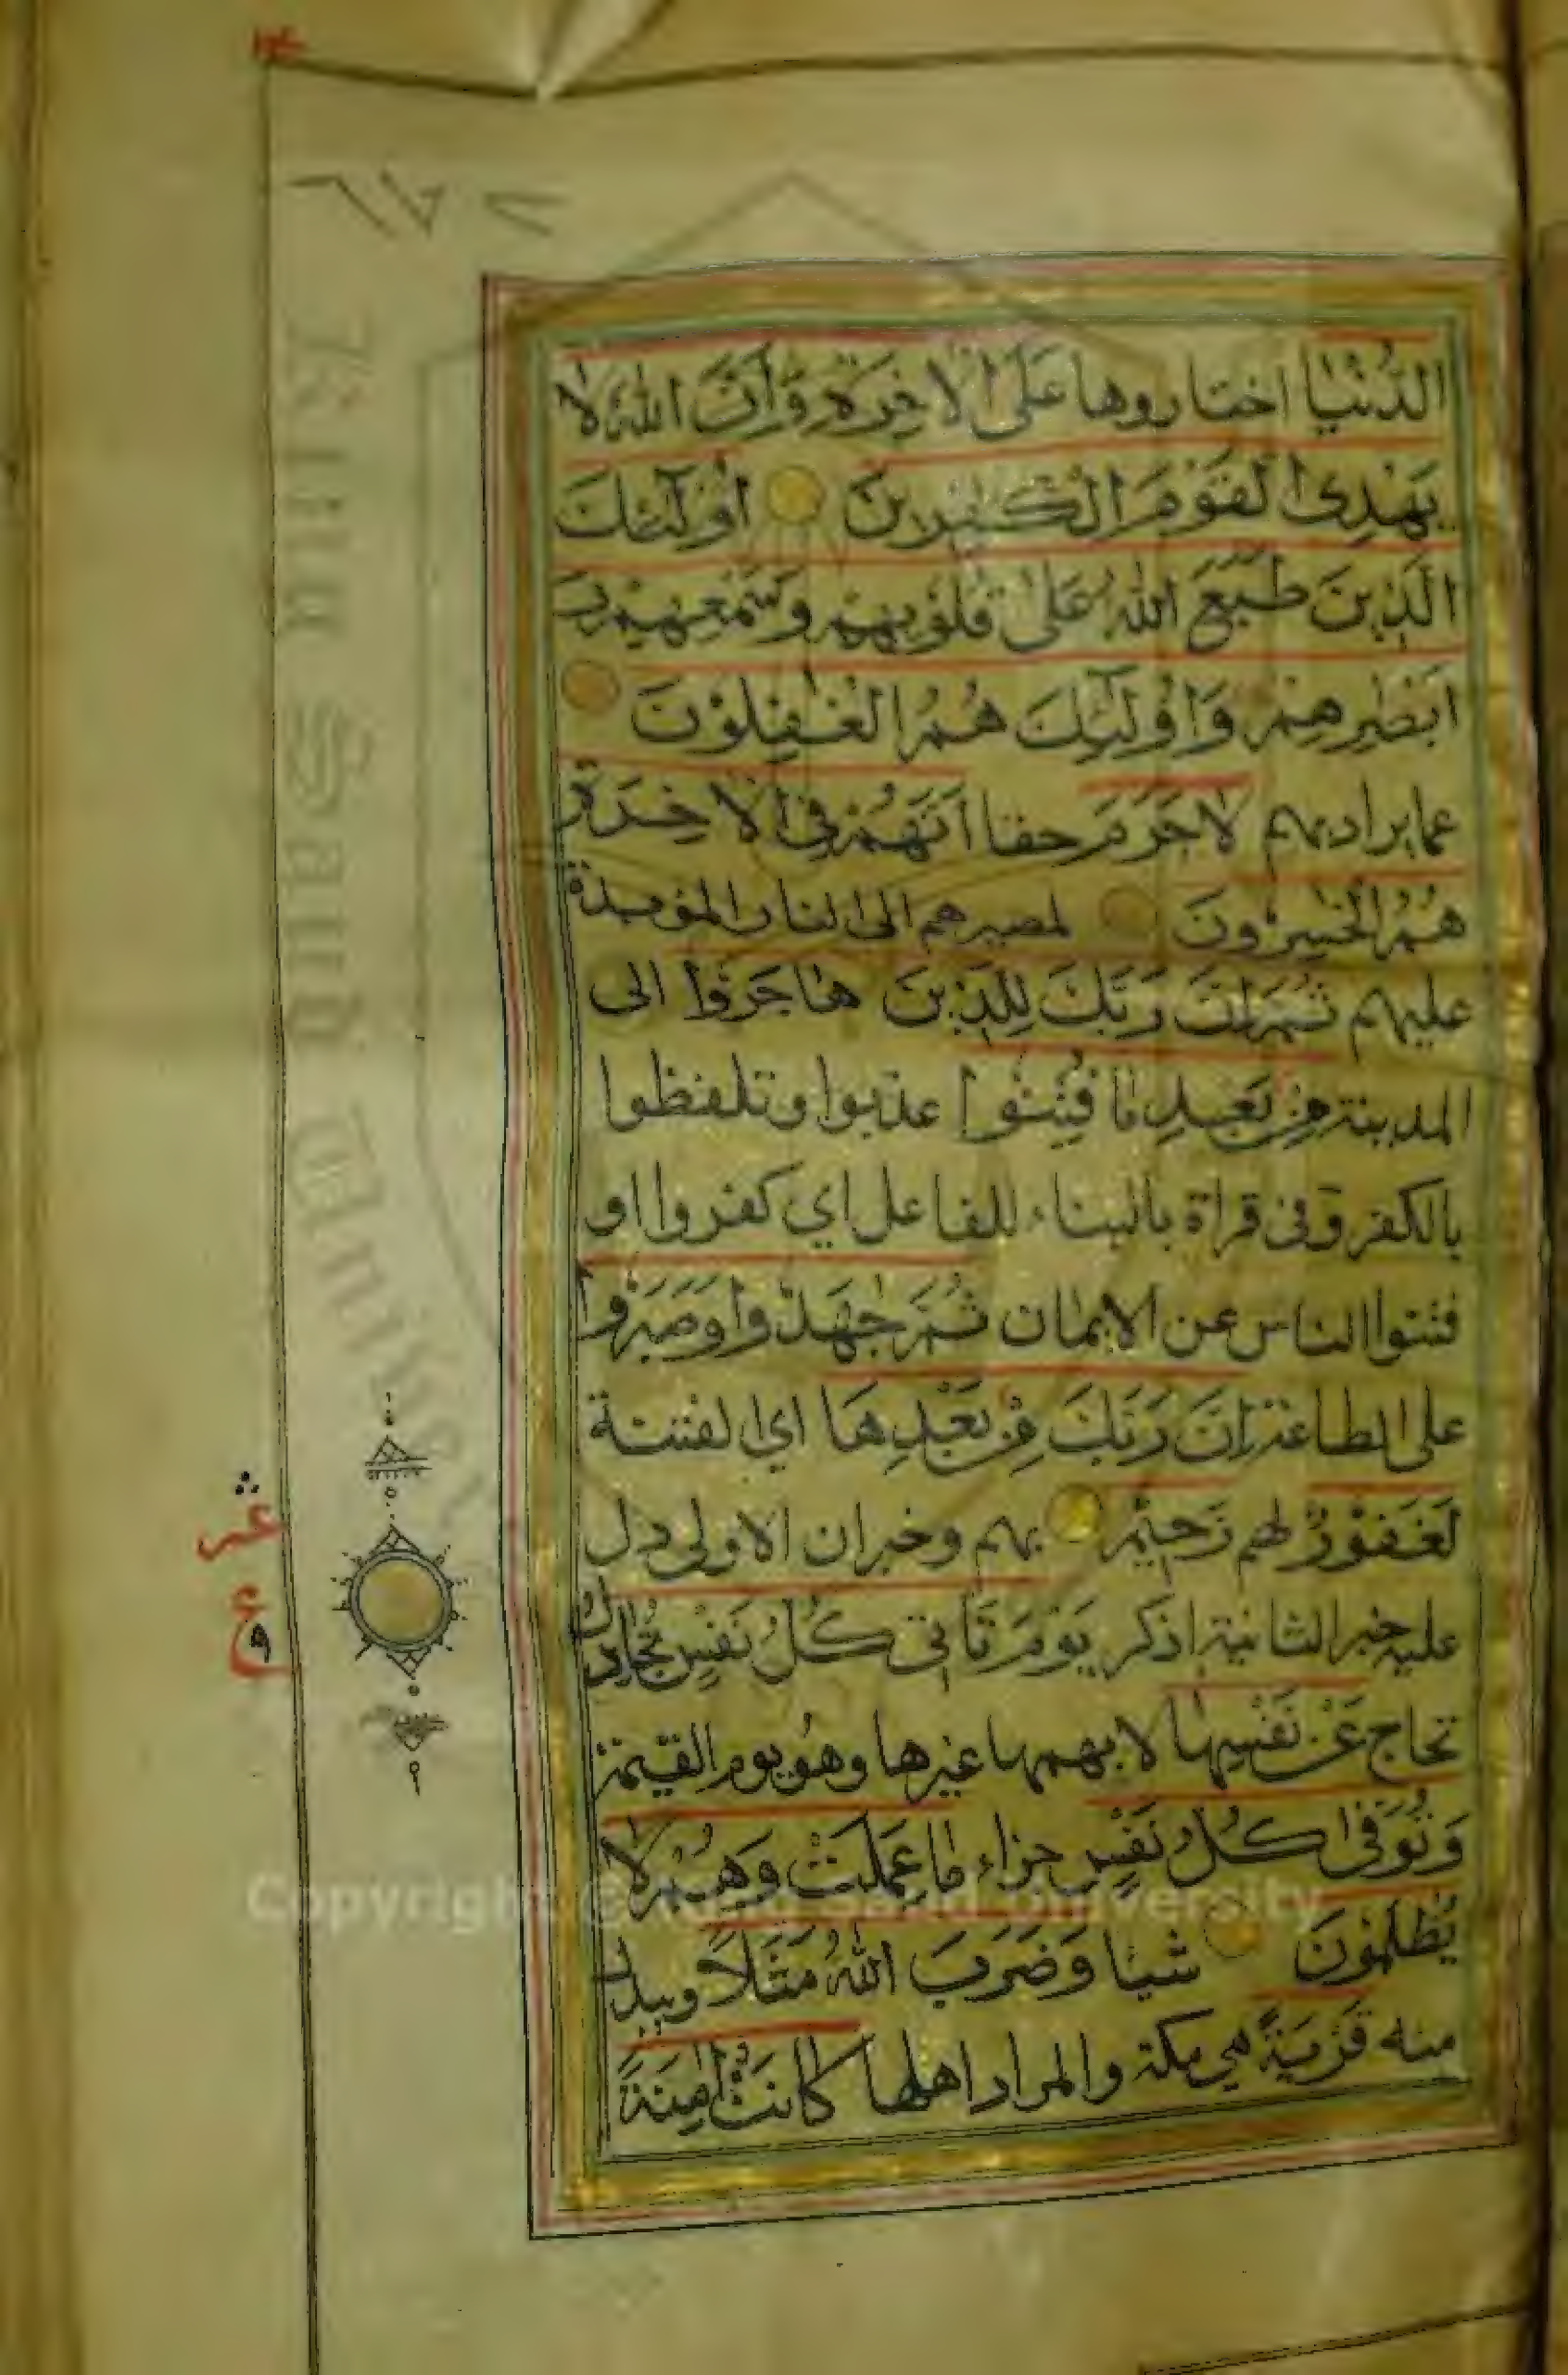 ٦٧٧
الدُّنْيَا اختاروها عَلَى الْاخِرَةِ وَاَنَّ اللهَ لَا
يَهْدِى الْقَوْمَ الْكٰفِرِينَ اُولٰٓئِكَ
الَّذِينَ طَبَعَ اللهُ عَلٰى قُلُوبِهِمْ وَسَمْعِهِمْ وَ
اَبْصٰرِهِمْ وَاُولٰٓئِكَ هُمُ الْغٰفِلُوْنَ
عما يراد بهم لَاجَرَمَ حقا اَنَّهُمْ فِى الْاخِرَةِ
هُمُ الْخٰسِرُونَ لمصيرهم الى النار المؤبدة
عليهم ثُمَّ اِنَّ رَبَّكَ لِلَّذِينَ هَاجَرُوا الى
المدينة مِنْ بَعْدِ مَا فُتِنُوا عذبوا وتلفظوا
بالكفر وفى قراة بالبناء للفاعل اي كفروا او
فتنوا الناس عن الايمان ثُمَّ جٰهَدُوا وَصَبَرُوا
على الطاعة اِنَّ رَبَّكَ مِنْ بَعْدِهَا اي الفتنة
لَغَفُوْرٌ لهم رَحِيْمٌ بهم وخبر ان الاولى دل
عليه خبر الثانية اذكر يَوْمَ تَاْتِى كُلُّ نَفْسٍ تُجَادِلُ
تحاج عَنْ نَفْسِهَا لا يهمها غيرها وهو يوم القيمة
وَتُوَفّٰى كُلُّ نَفْسٍ جزاء مَا عَمِلَتْ وَهُمْ لَا
يُظْلَمُونَ شيئا وَضَرَبَ اللهُ مَثَلًا ويبدل
منه قَرْيَةً هي مكة والمراد اهلها كَانَتْ اٰمِنَةً
عشر
ع
٩
Copyright © King Saud University
King Saud University